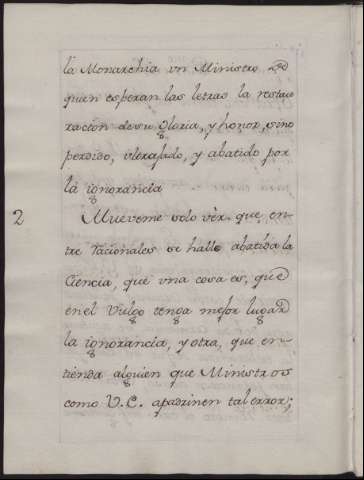 la Monarchia vn Ministro de
quien esperan las letras la restau
racion de su gloria, y honor, sino
perdido, vltrajado, y abatido por
la ignorancia
2 Mueveme solo vèr que en-
tre racionales se halle abatida la
Ciencia, que vna cosa es, que
en el Vulgo tenga mejor lugar
la ignorancia, y otra, que en-
tienda alguien que Ministros
como V.E. apadrinen tal error;